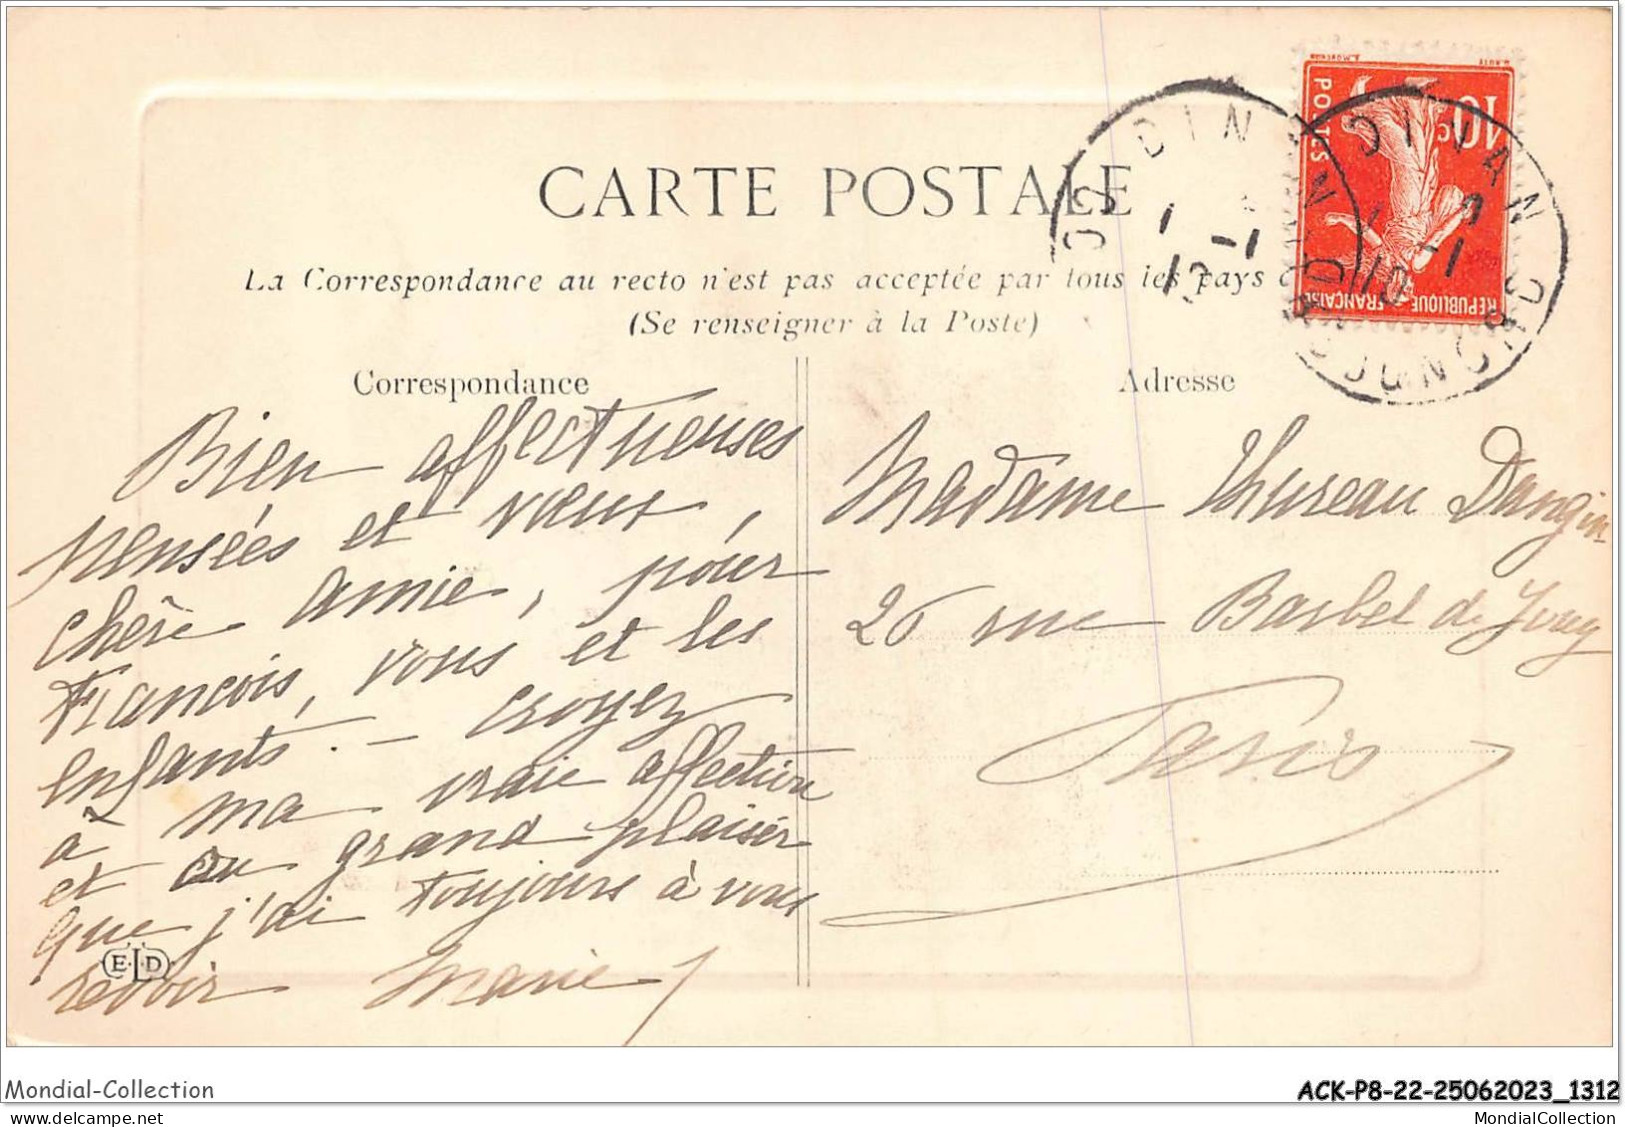 CARTE POSTALE
La Correspondance au recto n'est pas acceptée par tous les pays
(Se renseigner à la Poste)
Correspondance
Bien affectueuses
pensées et vœux,
chère amie, pour
François, vous et les
enfants. — croyez
à ma vraie affection
et au grand plaisir
que j'ai toujours à vous
revoir Marie
E.L.D
Adresse
Madame Thureau Dangin
26 rue Barbet de Jouy
Paris
10c
POSTES
REPUBLIQUE FRANÇAISE
DINAN
1 -1
10
DINAN
-1
10
Mondial-Collection
ACK-P8-22-25062023_1312
www.delcampe.net
MondialCollection